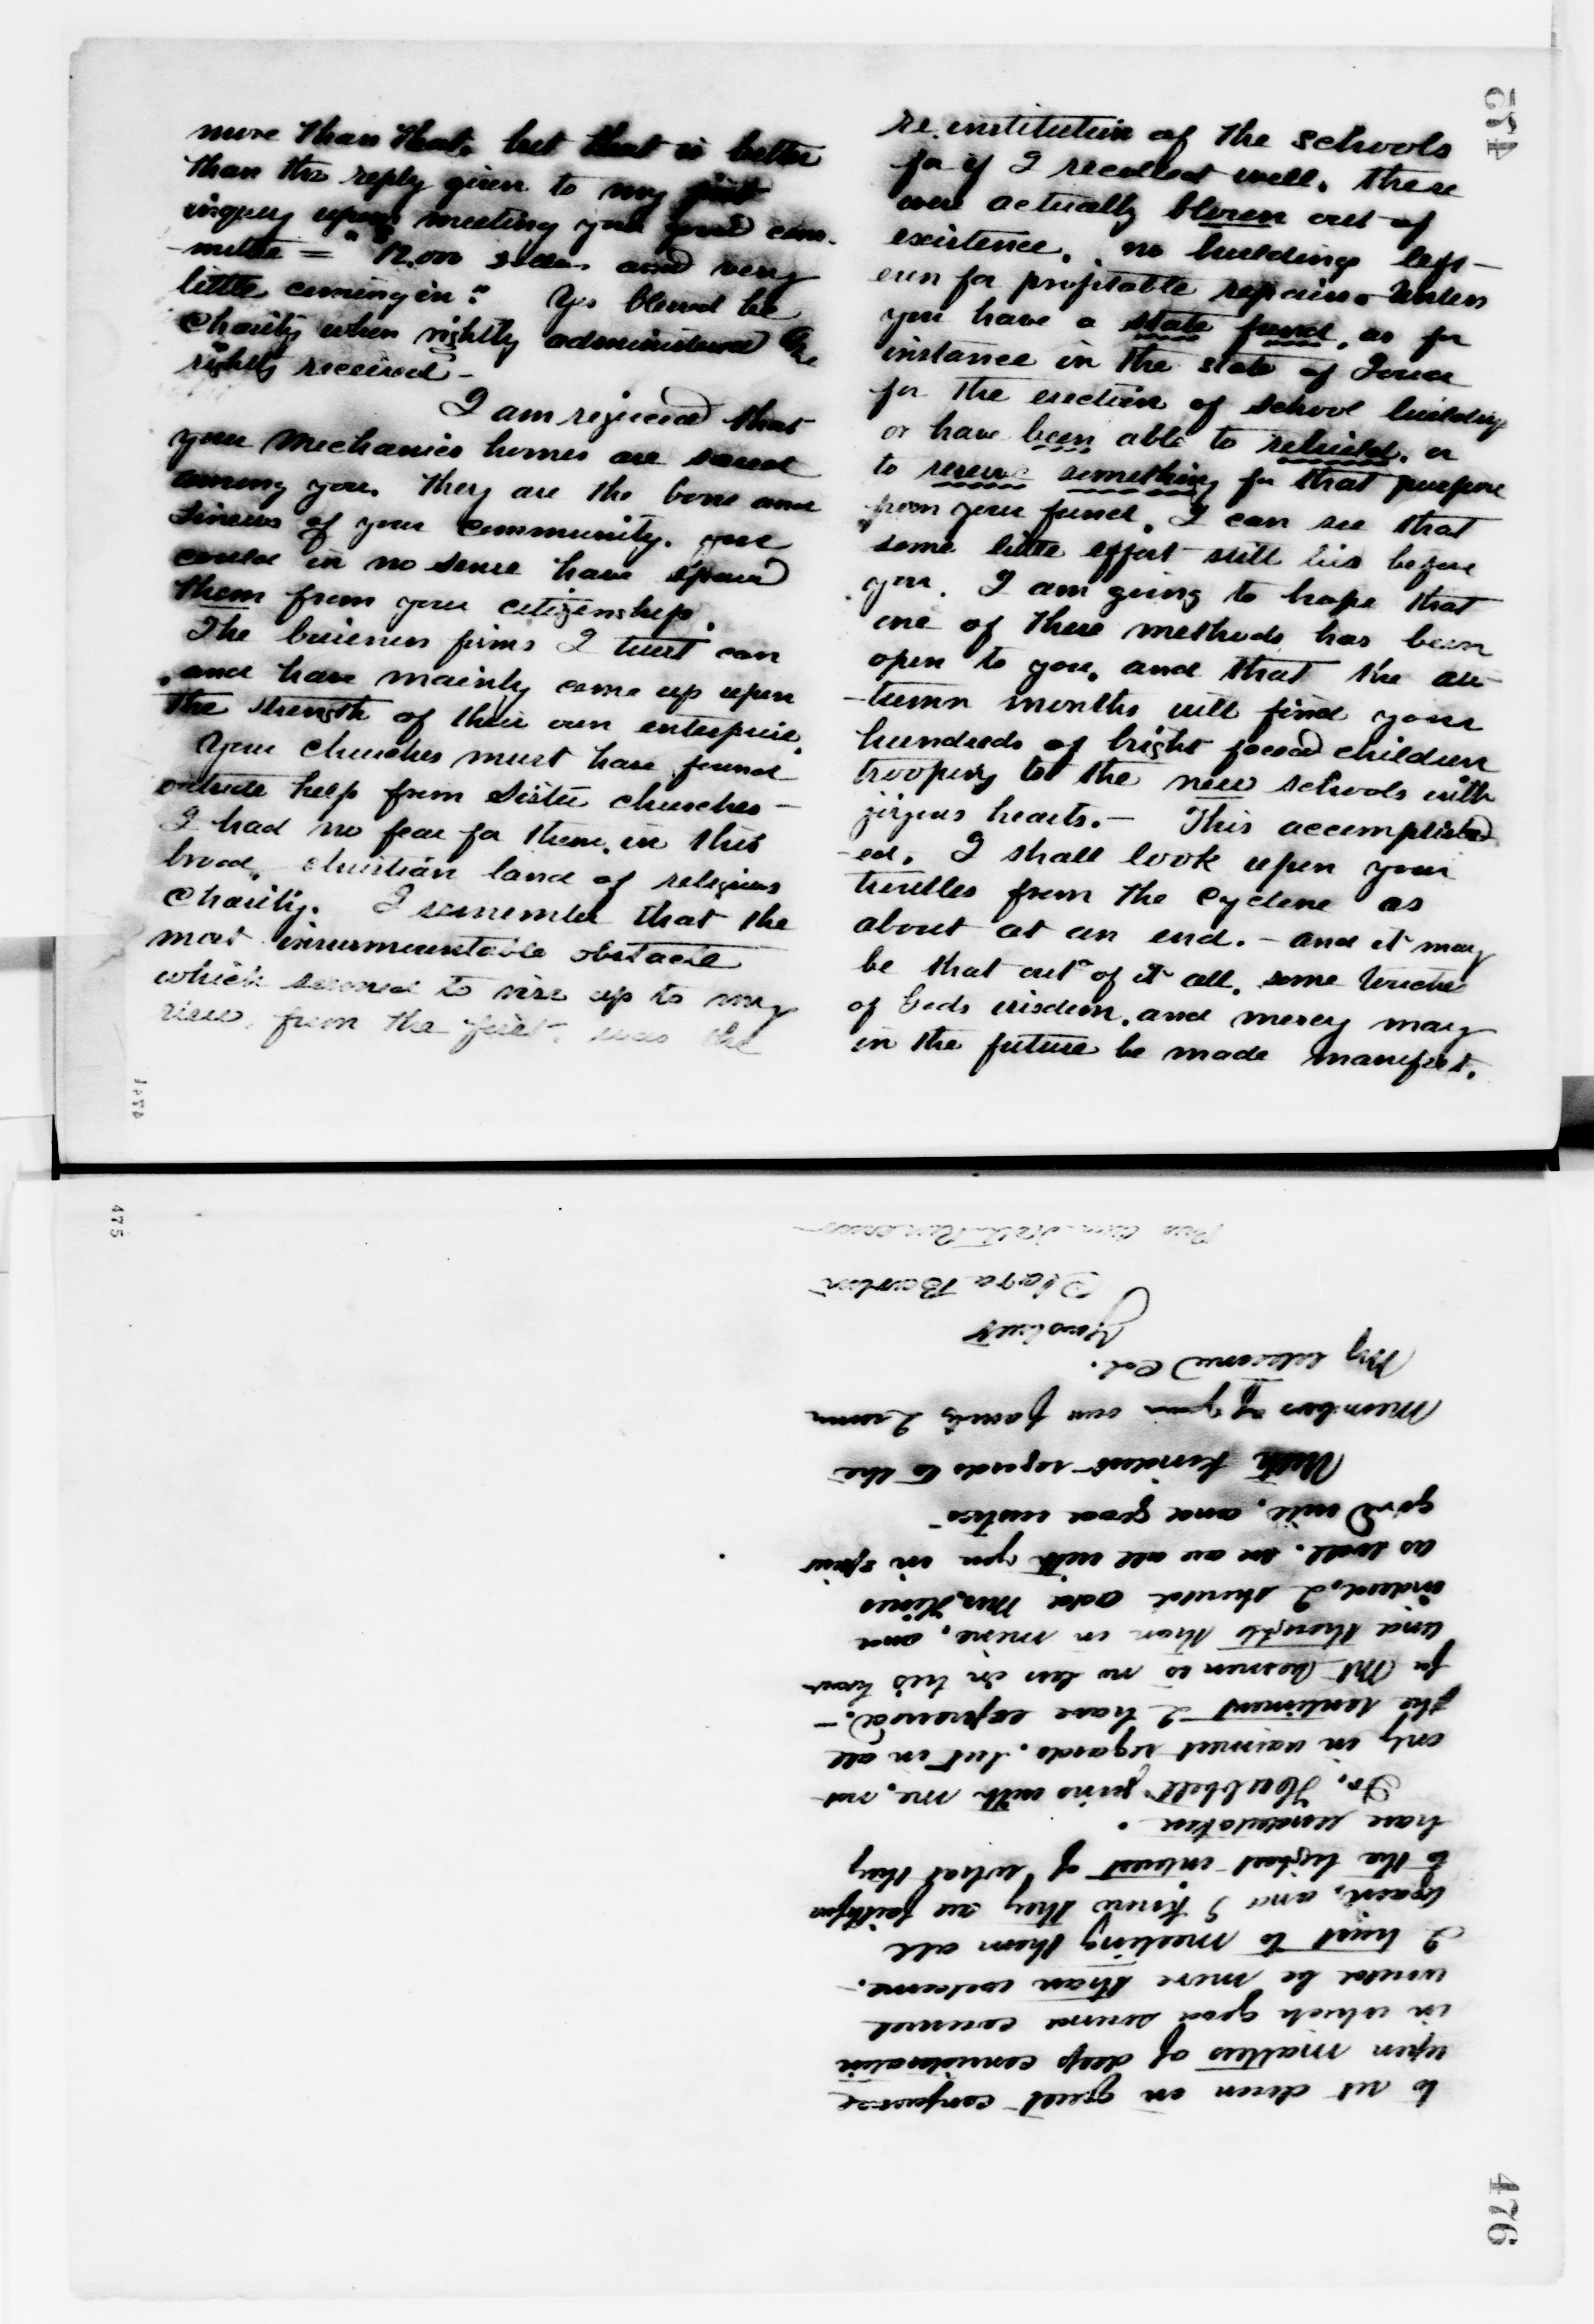 more than that, but that is better
than the reply given to my first
inquiry upon meeting your good com-
-mittee = "12,000 and very
little coming in." Yes blessed be
Charity when rightly administered &
rightly received -
I am rejoiced that
your Mechanics homes are saved
among you. They are the bone and
Sinews of your Community. you
could in no sense have spared
them from your citizenship.
The business firms I trust can
and have mainly come up upon
the strength of their own enterprise.
Your Churches must have found
outside help from Sister churches -
I had no fear for them, in this
broad, christian land of religious
Charity. I remember that the
most insurmountable obstacle
which seemed to rise up to my
view, from the first, was the
re institution of the schools
for if I recollect well, these
were actually blown out of
existence, no buildings left -
even for profitable repairs. Unless
you have a state fund, as for
instance in the state of Iowa
for the erection of school buildings
or have been able to rebuild, or
to reserve something for that purpose
from your fund, I can see that
some little effort still lies before
you. I am going to hope that
one of these methods has been
open to you, and that the au-
-tumn months will find your
hundreds of bright faced children
trooping to the new schools with
joyous hearts. - This accomplished
-ed, I shall look upon your
troubles from the Cyclone as
about at an end. - and it may
be that out of it all, some touches
of Gods wisdom, and mercy may
in the future be made manifest.
474
475
to sit down in quiet conference
upon matters of deep consideration
in which good sound counsel
would be more than welcome. -
I trust to meeting them all
again, and I know they are faithful
to the highest interest of what they
have undertaken.
Dr. Hubbell joins with me, not
only in warmest regards, but in all
the sentiment I have expressed. -
for Mt Vernon is no less in his heart
and thought than in mine, and
indeed, I should add Mrs. Hines
as well. we are all with you in spirit
good will, and good wishes -
With kindest regards to the
Members of your own family I remain
My esteemed Col.
Yours truly
Clara Barton
Pres Am. Natl. Red Cross
476